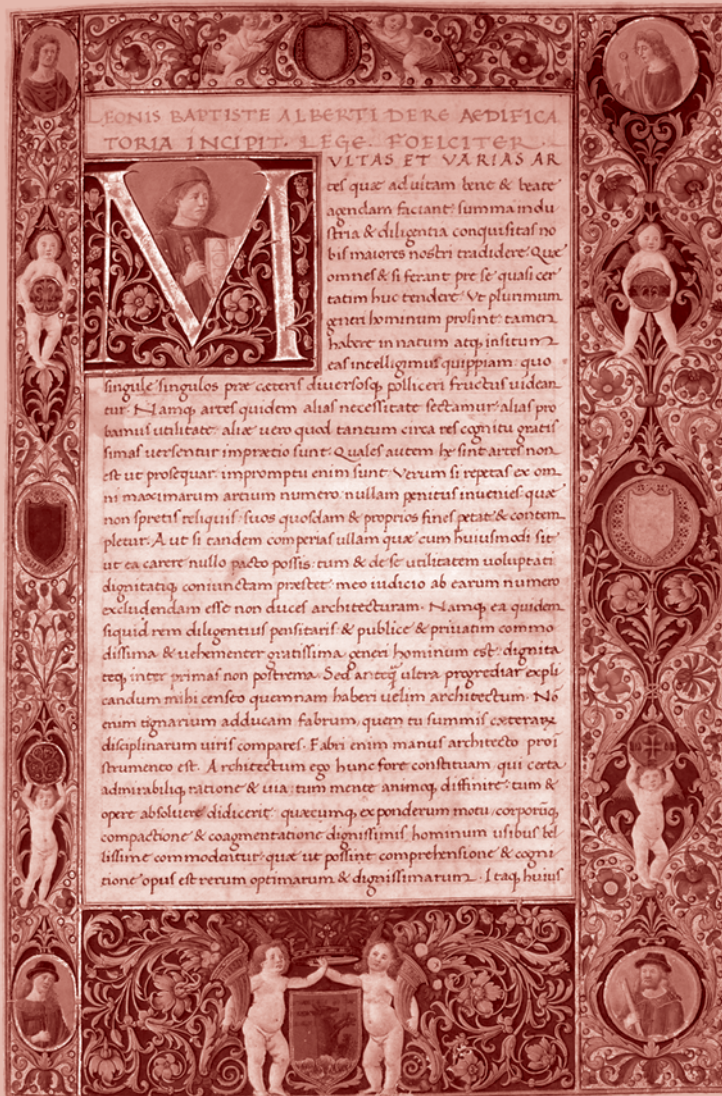 LEONIS BAPTISTE ALBERTI DE RE AEDIFICA
TORIA INCIPIT. LEGE. FOELCITER.
MVLTAS ET VARIAS AR
tes quæ ad uitam bene & beate
agendam faciant summa indu
stria & diligentia conquisitas no
bis maiores nostri tradidere. Quæ
omnes & si ferant pre se quasi cer
tatim huc tendere. Vt plurimum
generi hominum prosint: tamen
habere innatum atq, insitum
eas intelligimus quippiam: quo
singule singulos præ cæteris diuersosq, polliceri fructus uidean
tur. Namq, artes quidem alias necessitate sectamur: alias pro
bamus utilitate: aliæ uero quod tantum circa res cognitu gratis
simas uersentur in prætio sunt. Quales autem hę sint artes non
est ut prosequar: in promptu enim sunt. Verum si repetas ex om
ni maximarum artium numero: nullam penitus inuenies quæ
non spretis reliquis suos quosdam & proprios fines petat & contem
pletur. Aut si tandem comperias ullam quæ cum huiusmodi sit
ut ea carere nullo pacto possis: tum & de se utilitatem uoluptati
dignitatiq, coniunctam præstet: meo iudicio ab earum numero
excludendam esse non duces architecturam. Namq, ea quidem
siquid rem diligentius pensitaris & publice & priuatim commo
dissima & uehementer gratissima generi hominum est: dignita
teq, inter primas non postrema. Sed anteq̃ ultra progrediar expli
candum mihi censeo quemnam haberi uelim architectum. Nō
enim tignarium adducam fabrum, quem tu summis cæterarꝝ
disciplinarum uiris compares. Fabri enim manus architecto pro ī
strumento est. Architectum ego hunc fore constituam qui certa
admirabiliq, ratione & uia: tum mente animoq, diffinire: tum &
opere absoluere didicerit: quæcumq, ex ponderum motu, corporūq,
compactione & coagmentatione dignissimis hominum usibus bel
lissime commodentur: quæ ut possint comprehensione & cogni
tione opus est rerum optimarum & dignissimarum. Itaq, huius